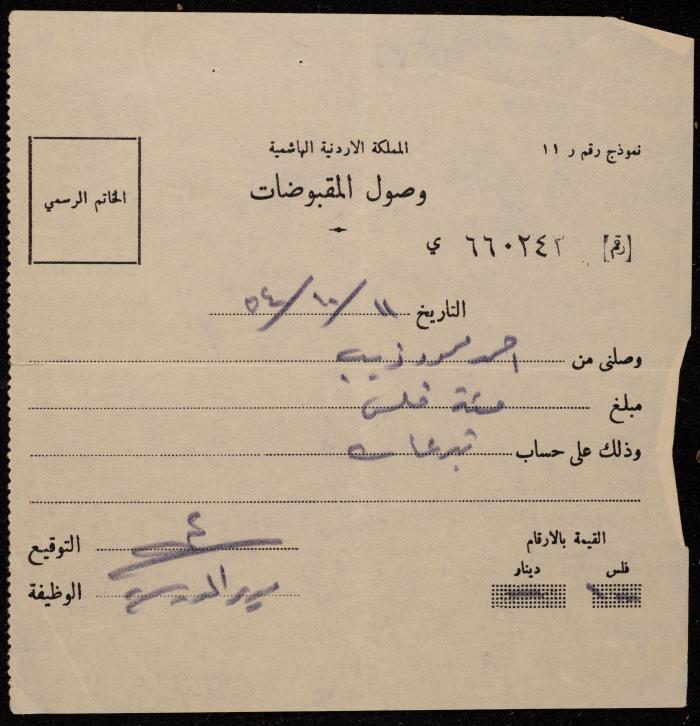 المملكة الاردنية الهاشمية
نموذج رقم ر ١١
وصول المقبوضات
الخاتم الرسمي
[رقم] ٦٦٠٢٤٢ ي
التاريخ ١١/١٠/٥٤
وصلنى من احمد محمود ذيب
مبلغ مئة فلس
وذلك على حساب تبرعات
القيمة بالارقام
فلس دينار
التوقيع
الوظيفة مدير المدرسة